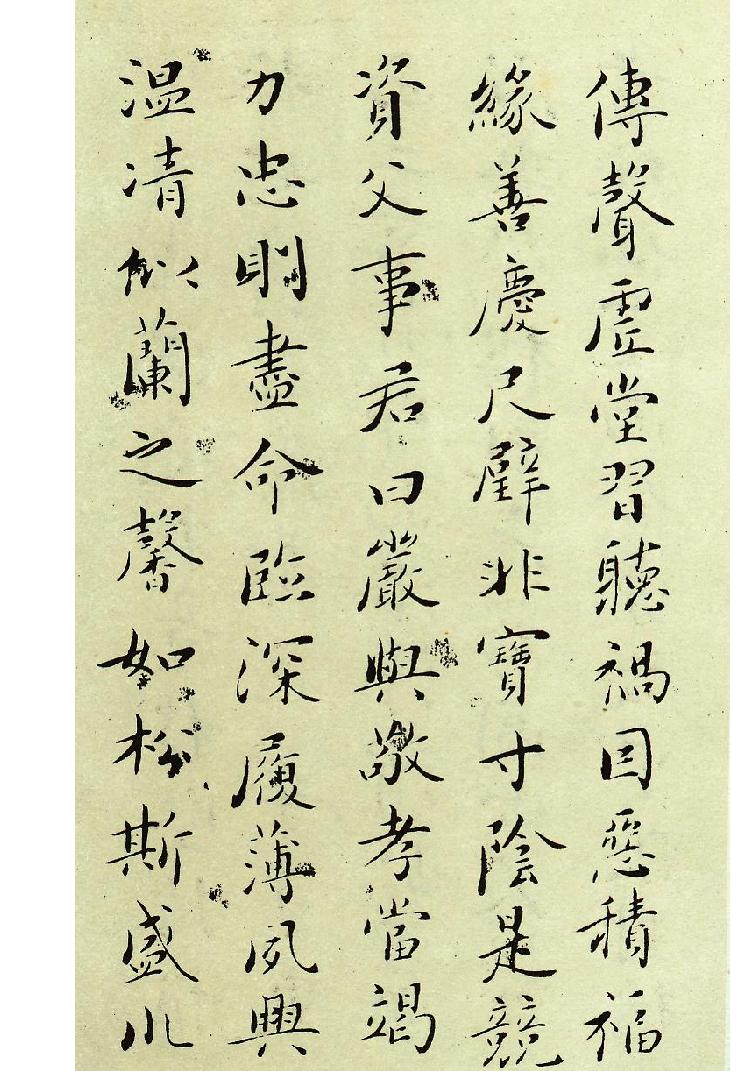 傳聲虛堂習聽禍因惡積福
緣善慶尺璧非寶寸陰是競
資父事君曰嚴與敬孝當竭
力忠則盡命臨深履薄夙興
温清似蘭之馨如松斯盛川